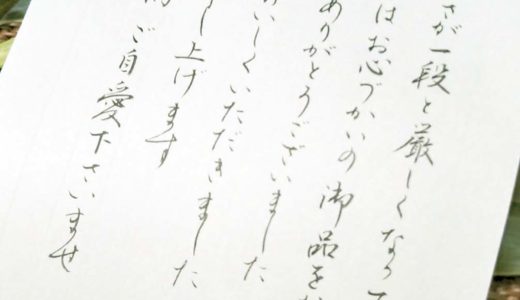 さが一段と厳しくなって
はお心づかいの御品を
ありがとうございました
いしくいただきました
し上げます
ご自愛下さいませ